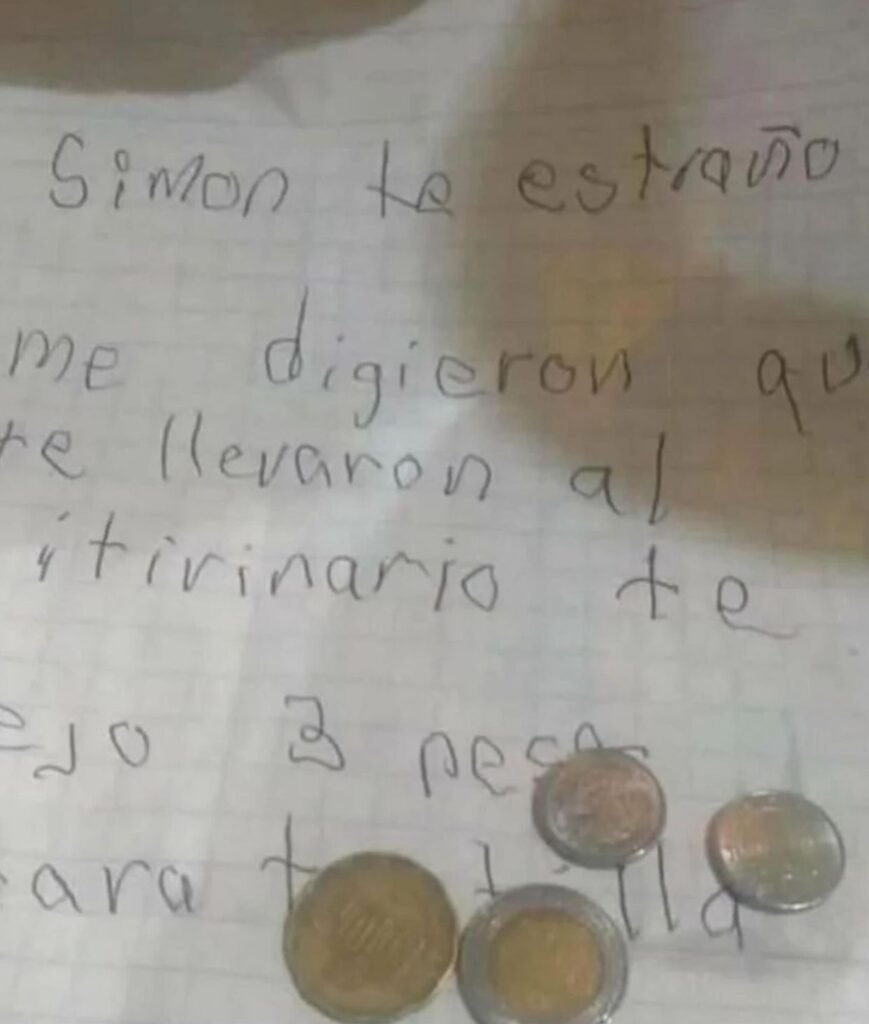 Simon te estraño
me digieron qu
te llevaron al
itirinario te
ejo 3 peso
ara t t lla